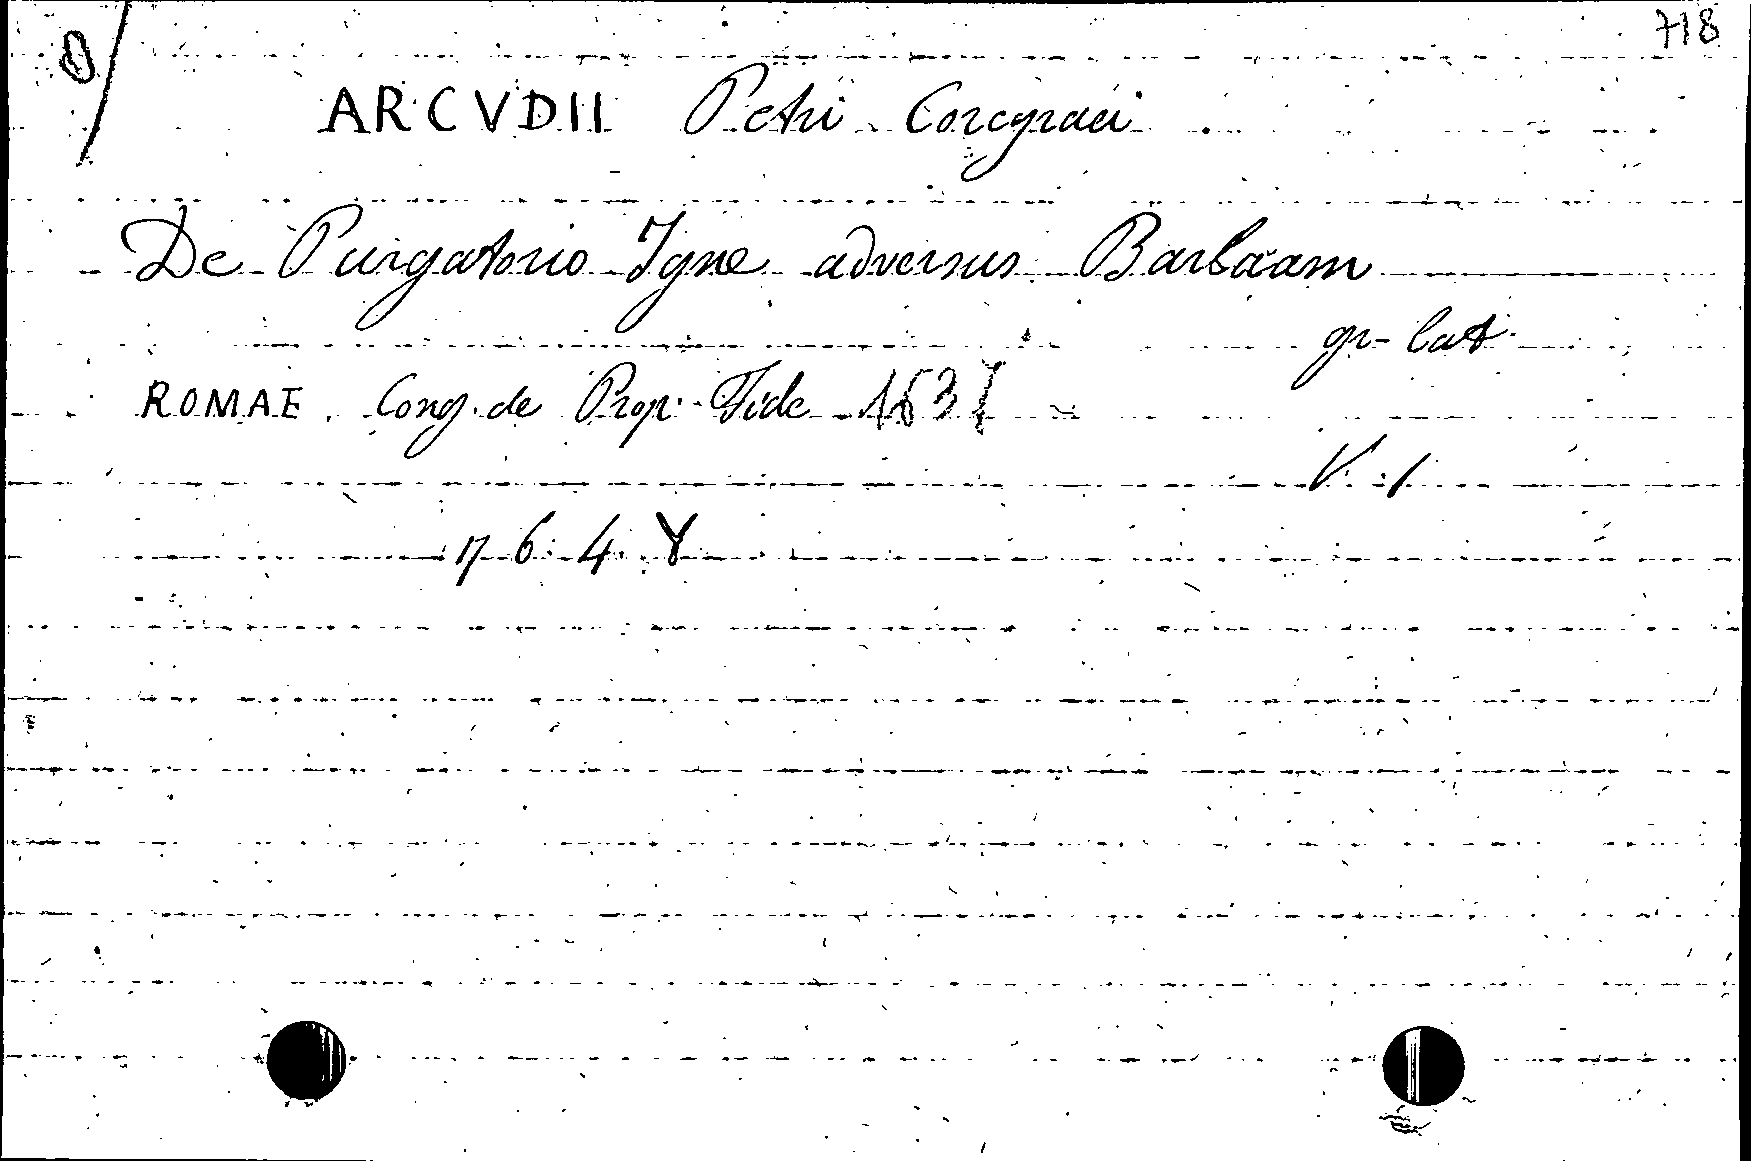 718
ARCVDII Petri Corcyraei
De Purgatorio Igne adversus Barlaam
gr-lat
ROMAE. Cong. de Prop. Fide 1637
V. 1
17 6. 4. Y